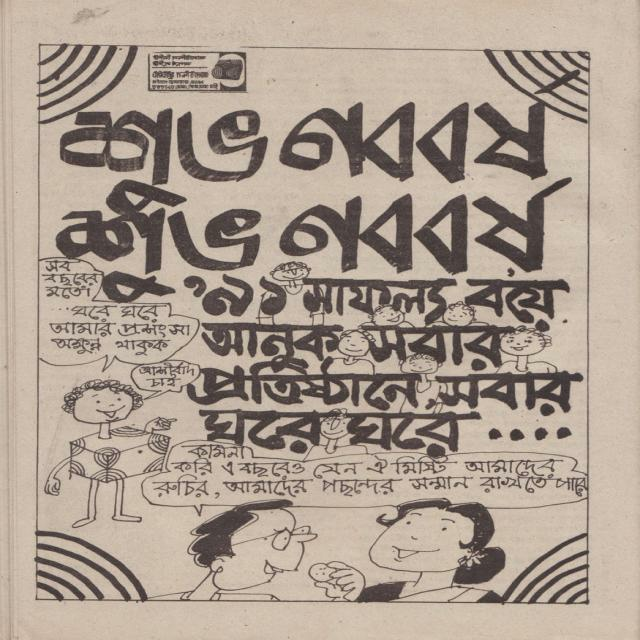 শুভ নববর্ষ
শুভ নববর্ষ
'৯১ সাফল্য বয়ে
আনুক সবার
প্রতিষ্ঠানে, সবার
ঘরে ঘরে ....
সব
বছরের
মতো
ঘরে ঘরে
আমার প্রশংসা
অক্ষুন্ন থাকুক
আশীর্বাদ
চাই
কামনা
করি এ বছরেও যেন ঐ মিষ্টি আমাদের
রুচির, আমাদের পছন্দের সন্মান রাখতে পারে